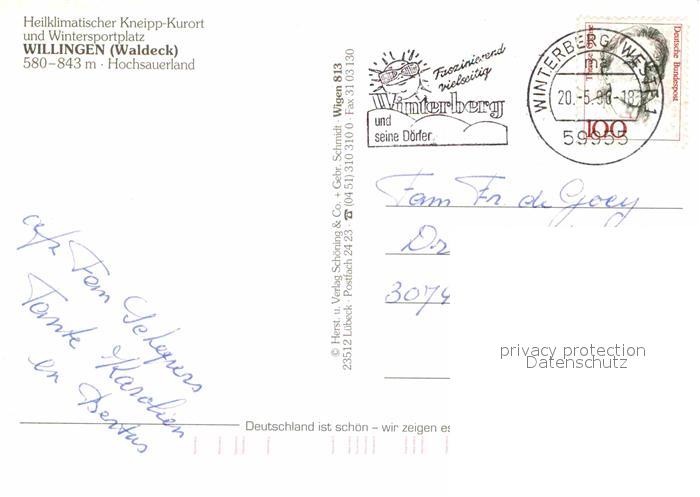 Heilklimatischer Kneipp-Kurort
und Wintersportplatz
WILLINGEN (Waldeck)
580–843 m · Hochsauerland
Faszinierend
vielseitig
Winterberg
und
seine Dörfer
WINTERBERG, WESTF 1
ma
20.-5.96-18
59955
Deutsche Bundespost
100
Fam Fr. de Goey
Dr
3074
© Herst. u. Verlag Schöning & Co. + Gebr. Schmidt · Wigen 813
23512 Lübeck · Postfach 24 23 · ☎ (04 51) 310 310 0 · Fax 31 03 130
afz Fam Schepers
Tante Karolien
en Bertus
privacy protection
Datenschutz
Deutschland ist schön – wir zeigen es